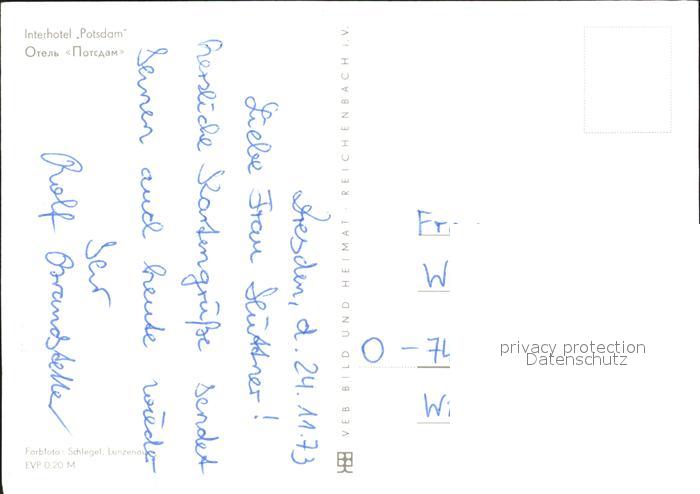 Interhotel „Potsdam"
Отель «Потсдам»
Dresden, d. 24.11.73
Liebe Frau Hüttner!
Herzliche Kartengrüße sendet
Ihnen auch heute wieder
Ihr
Rolf Brandstetter
Farbfoto: Schlegel, Lunzenau
EVP 0,20 M
VEB BILD UND HEIMAT · REICHENBACH i. V.
Fr
W
O - 74
Wi
privacy protection
Datenschutz